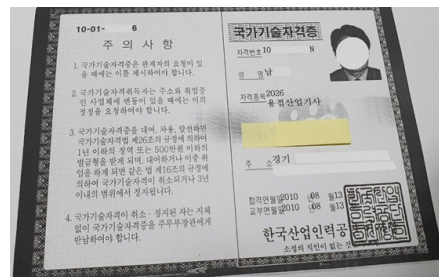 10-01- 6
주 의 사 항
1. 국가기술자격증은 관계자의 요청이 있
을 때에는 이를 제시하여야 합니다.
2. 국가기술자격취득자는 주소와 취업중
인 사업체에 변동이 있을 때에는 이의
정정을 요청하여야 합니다.
3. 국가기술자격증을 대여, 차용, 알선하면
국가기술자격법 제26조의 규정에 의하여
1년 이하의 징역 또는 500만원 이하의
벌금형을 받게 되며, 대여하거나 이중 취
업을 하게 되면 같은 법 제16조의 규정에
의하여 국가기술자격이 취소되거나 3년
이내의 범위에서 정지됩니다.
4. 국가기술자격이 취소·정지된 자는 지체
없이 국가기술자격증을 주무부장관에게
반납하여야 합니다.
국가기술자격증
자격번호 10 N
성 명 남
자격종목 2026
용접산업기사
주 소 경기
합격연월일 2010 년 08 월 13
교부연월일 2010 년 08 월 13
한국산업인력공
소정의 직인이 없는 것